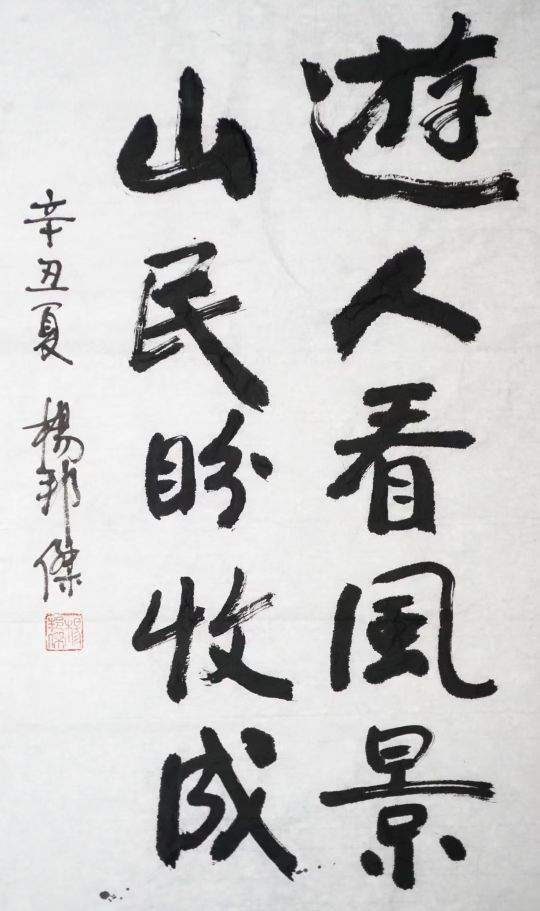 遊人看風景
山民盼收成
辛丑夏 楊邦傑